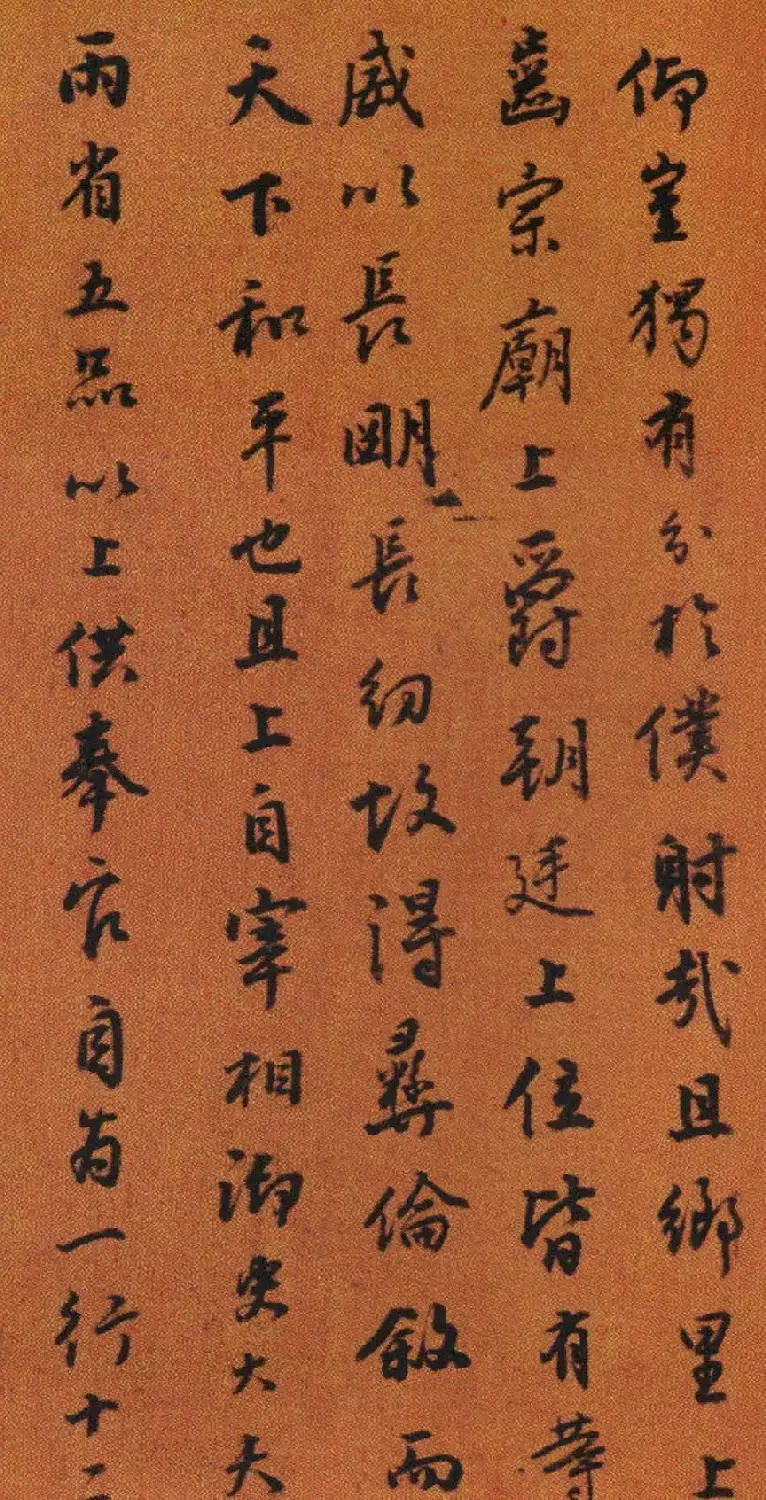 仰豈獨有分於僕射哉且鄉里上
齒宗廟上爵朝廷上位皆有等
威以長明長幼故得彝倫敘而
天下和平也且上自宰相御史大夫
兩省五品以上供奉官自為一行十二